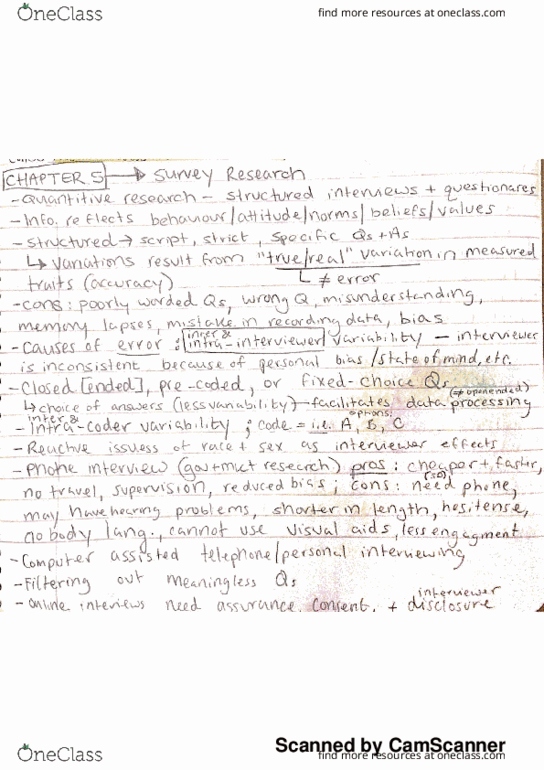 OneClass
find more resources at oneclass.com
CHAPTER 5 → Survey Research
- Quantitive research - structured interviews + questionares
- Info. reflects behaviour/attitude/norms/beliefs/values
- Structured → script, strict, specific Qs + As
↳ Variations result from "true/real" variation in measured
traits (accuracy) ↳ ≠ error
- cons: poorly worded Qs, wrong Q, misunderstanding,
memory lapses, mistake in recording data, bias
- Causes of error: inter & intra-interviewer variability - interviewer
is inconsistent because of personal bias/state of mind, etc.
- Closed [ended], pre-coded, or fixed-choice Qs (≠ openended)
↳ choice of answers (less variability) - facilitates data processing
- inter & Intra-coder variability; code = i.e. options: A, B, C
- Reactive issues of race + sex as interviewer effects
- Phone interview (gov + mkt research) pros: cheaper +, faster,
no travel, supervision, reduced bias; cons: need phone,
may have hearing problems, shorter in length, hesitense,
no body lang., cannot use visual aids, less engagment
- Computer assisted telephone/personal interviewing
- Filtering out meaningless Qs
- Online interviews need assurance, consent, + interviewer disclosure
Scanned by CamScanner
OneClass
find more resources at oneclass.com